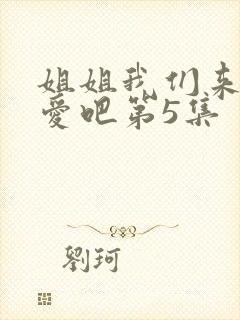 姐姐我们来
爱吧第5集
劉珂